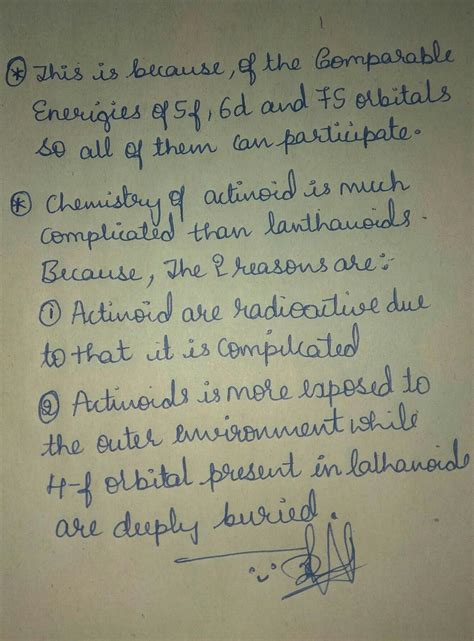 1
* This is because, of the Comparable
Enerigies of 5f, 6d and 7S orbitals
so all of them can participate.
* Chemistry of actinoid is much
complicated than lanthanoids.
Because, The 2 reasons are:-
① Actinoid are radioactive due
to that it is complicated
② Actinoids is more exposed to
the outer environment while
4-f orbital present in lathanoids
are deeply buried.